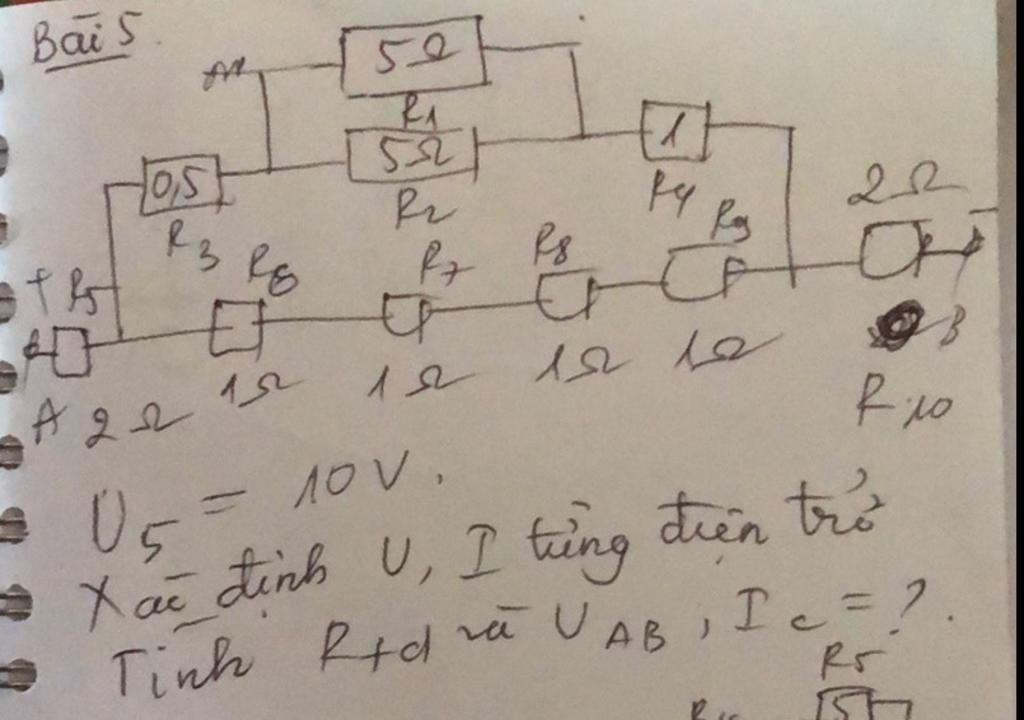 Bài 5
5Ω
R1
5Ω
R2
0,5
R3
1
R4
R5
R6
R7
R8
R9
2Ω
+
-
A 2Ω
1Ω
1Ω
1Ω
1Ω
B
R10
U5 = 10V.
Xác định U, I từng điện trở
Tính Rtđ và UAB, Ic = ?
R5
5